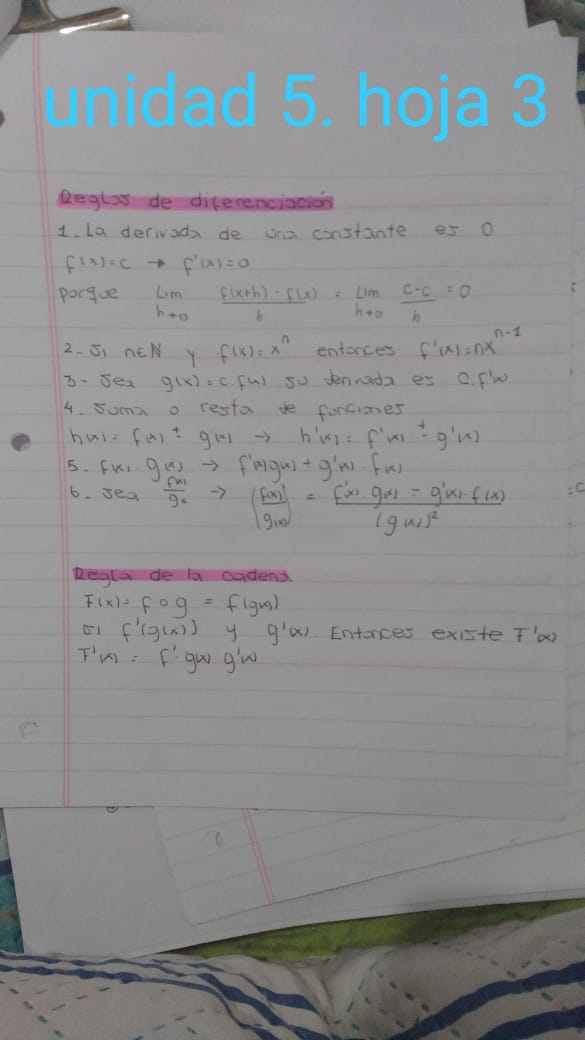 unidad 5. hoja 3
Reglas de diferenciación
1. La derivada de una constante es 0
f(x)=c → f'(x)=0
porque Lim h→0 f(x+h)-f(x)/h = Lim h→0 c-c/h = 0
2- Si n∈N y f(x)=x^n entonces f'(x)=nx^n-1
3- Sea g(x)=c.f(x) su derivada es c.f'(x)
4. Suma o resta de funciones
h(x)= f(x) ± g(x) → h'(x)= f'(x) ± g'(x)
5. f(x) g(x) → f'(x)g(x)+g'(x).f(x)
6- Sea f(x)/gx → (f(x)/g(x))' = f'(x).g(x) - g'(x).f(x)/(g(x))²
Regla de la cadena
F(x)= f o g = f(g(x))
Si f'(g(x)) y g'(x). Entonces existe F'(x)
F'(x) = f'.g(x) g'(x)